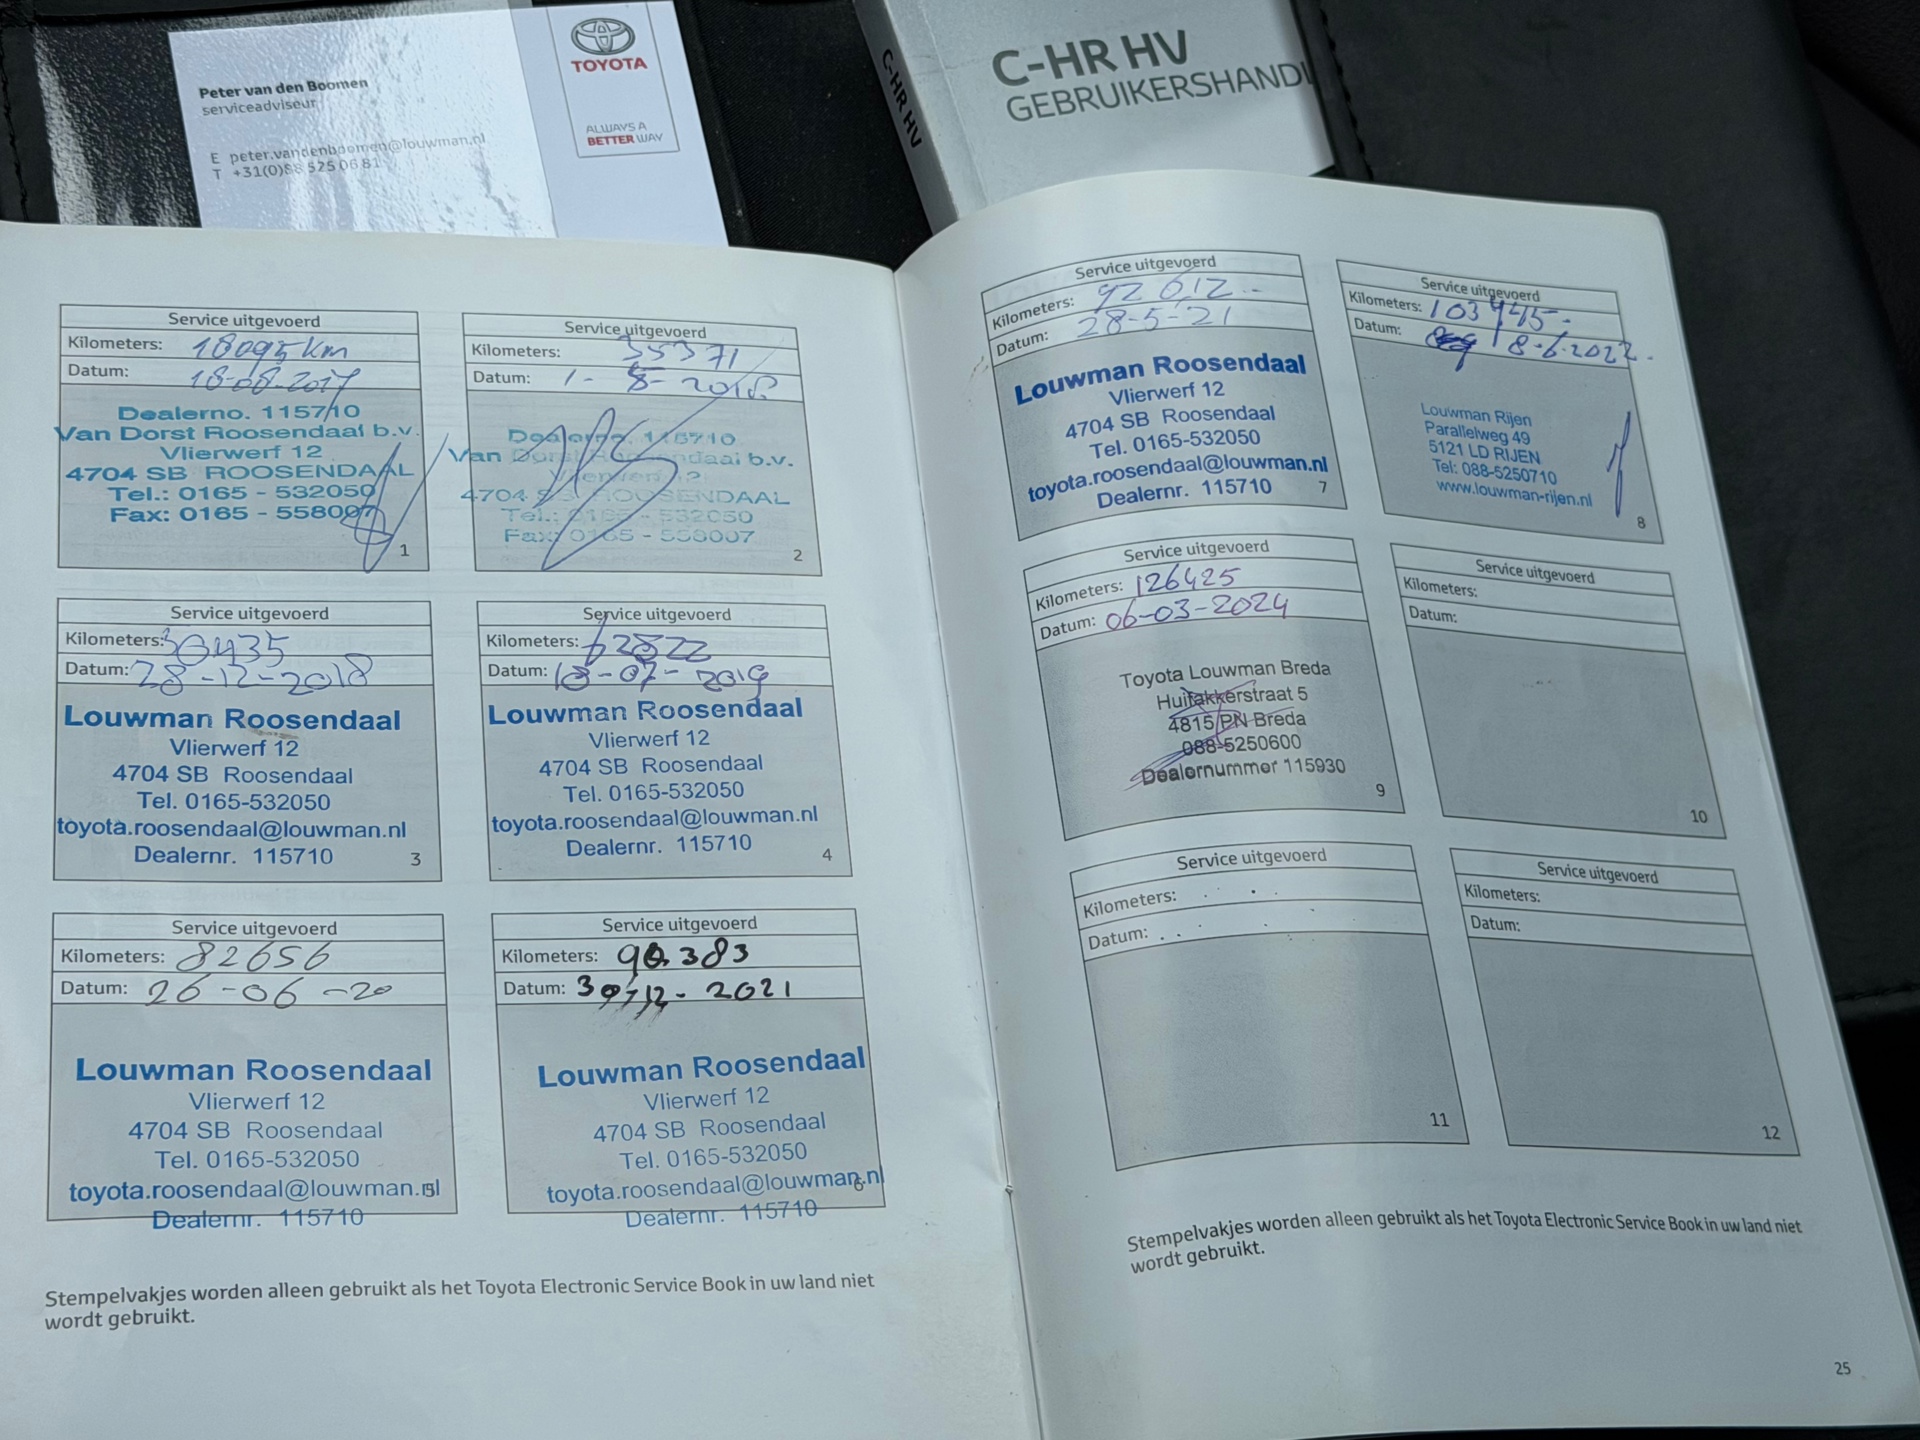 Peter van den Boomen
serviceadviseur
E peter.vandenboomen@louwman.nl
T +31(0)88 525 06 81
TOYOTA
ALWAYS A
BETTER WAY
C-HR HV
C-HR HV
GEBRUIKERSHANDL
Service uitgevoerd
Kilometers: 18095 km
Datum: 18-08-2017
Dealerno. 115710
Van Dorst Roosendaal b.v.
Vlierwerf 12
4704 SB ROOSENDAAL
Tel.: 0165 - 532050
Fax: 0165 - 558007
1
Service uitgevoerd
Kilometers: 35371
Datum: 1-8-2018
Dealerno. 115710
Van Dorst Roosendaal b.v.
Vlierwerf 12
4704 SB ROOSENDAAL
Tel.: 0165 - 532050
Fax: 0165 - 558007
2
Service uitgevoerd
Kilometers:
Datum: 28-12-2018
Louwman Roosendaal
Vlierwerf 12
4704 SB Roosendaal
Tel. 0165-532050
toyota.roosendaal@louwman.nl
Dealernr. 115710
3
Service uitgevoerd
Kilometers: 62822
Datum: 18-07-2019
Louwman Roosendaal
Vlierwerf 12
4704 SB Roosendaal
Tel. 0165-532050
toyota.roosendaal@louwman.nl
Dealernr. 115710
4
Service uitgevoerd
Kilometers: 82656
Datum: 26-06-20
Louwman Roosendaal
Vlierwerf 12
4704 SB Roosendaal
Tel. 0165-532050
toyota.roosendaal@louwman.nl
5
Dealernr. 115710
Service uitgevoerd
Kilometers: 90.383
Datum: 30-12-2021
Louwman Roosendaal
Vlierwerf 12
4704 SB Roosendaal
Tel. 0165-532050
toyota.roosendaal@louwman.nl
6
Dealernr. 115710
Stempelvakjes worden alleen gebruikt als het Toyota Electronic Service Book in uw land niet
wordt gebruikt.
Service uitgevoerd
Kilometers: 92612
Datum: 28-5-21
Louwman Roosendaal
Vlierwerf 12
4704 SB Roosendaal
Tel. 0165-532050
toyota.roosendaal@louwman.nl
Dealernr. 115710
7
Service uitgevoerd
Kilometers: 103445
Datum: 8-6-2022
Louwman Rijen
Parallelweg 49
5121 LD RIJEN
Tel: 088-5250710
www.louwman-rijen.nl
8
Service uitgevoerd
Kilometers: 126425
Datum: 06-03-2024
Toyota Louwman Breda
Huifakkerstraat 5
4815 PN Breda
088-5250600
Dealernummer 115930
9
Service uitgevoerd
Kilometers:
Datum:
10
Service uitgevoerd
Kilometers:
Datum:
11
Service uitgevoerd
Kilometers:
Datum:
12
Stempelvakjes worden alleen gebruikt als het Toyota Electronic Service Book in uw land niet
wordt gebruikt.
25